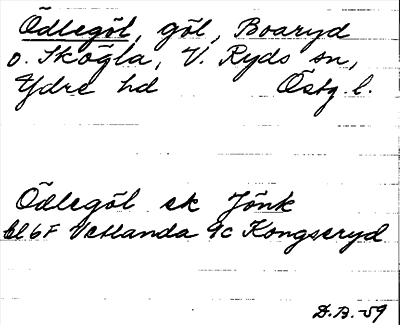 Ödlegöl, göl, Boaryd
o. Skögla, V. Ryds sn,
Ydre hd Östg. l.
Ödlegöl ek Jönk
bl 6F Vetlanda 9c Kongseryd
D.B. -59